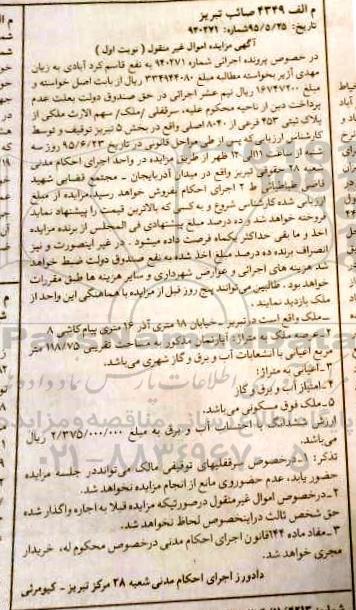 م الف ۴۳۴۹ صائب تبریز
تاریخ: ۹۵/۵/۲۵ شماره: ۹۴۰۲۷۱
آگهی مزایده اموال غیر منقول ( نوبت اول )
در خصوص پرونده اجرائی شماره ۹۴۰۲۷۱ به نفع قاسم کرد آبادی به زیان
مهدی آژیر بخواسته مطالبه مبلغ ۳۳۴۹۴۴۰۸۰ ریال از بابت اصل خواسته و
مبلغ ۱۶۷۴۷۲۰۰ ریال نیم عشر اجرائی در حق صندوق دولت بعلت عدم
پرداخت دین از ناحیه محکوم علیه، سرقفلی /ملک/ سهم الارث ملکی از
پلاک ثبتی ۴۵۳ فرعی از ۸۰۴۰ اصلی واقع در بخش ۵ تبریز توقیف و توسط
کارشناس ارزیابی که پس از طی مراحل قانونی در تاریخ ۹۵/۶/۲۳ روز سه
شنبه از ساعت ۱۱الی ۱۲ ظهر از طریق مزایده در واحد اجرای احکام مدنی
شعبه ۲۸ حقوقی تبریز واقع در میدان آذربایجان - مجتمع قضایی شهید
قاضی طباطبائی ط ۲ اجرای احکام بفروش خواهد رسید. مزایده از مبلغ
ارزیابی شده کارشناس شروع و به کسی که بالاترین قیمت را پیشنهاد نماید
فروخته خواهد شد و ده درصد مبلغ پیشنهادی فی المجلس از برنده مزایده
اخذ و ما بقی حداکثر یکماه فرصت داده میشود . در غیر اینصورت و نیز
انصراف برنده ده درصد مبلغ اخذ شده به نفع صندوق دولت ضبط خواهد
شد هزینه های اجرائی و عوارض شهرداری و سایر هزینه ها طبق مقررات
خواهد بود . طالبین می‌توانند پنج روز قبل از مزایده با هماهنگی این واحد از
ملک بازدید نمایند .
ـ ملک واقع است در تبریز - خیابان ۱۸ متری آذر ۱۶ متری پیام کاشی ۸
۲-عرصه ملک به متراژ: آپارتمان مذکور به مساحت تقریبی ۱۱۸/۷۵ متر
مربع اعیانی با انشعابات آب و برق و گاز شهری می‌باشد.
۳-اعیانی به متراژ:
۴-امتیاز آب و برق و گاز
۵-ملک فوق مسکونی می‌باشد.
ارزش ششدانگ با احتساب آب و برق به مبلغ ۲/۳۷۵/۰۰۰/۰۰۰ ریال
می‌باشد.
تذکر: ۱-درخصوص سرقفلیهای توقیفی مالک می‌توانددر جلسه مزایده
حضور یابد، عدم حضوروی مانع از انجام مزایده نخواهد شد.
۲-درخصوص اموال غیرمنقول درصورتیکه مزایده قبلا به اجاره واگذار شده
حق شخص ثالث دراینخصوص لحاظ نخواهد شد.
۳-مفاد ماده ۱۴۴قانون اجرای احکام مدنی درخصوص محکوم له، خریدار
مجری خواهد شد.
دادورز اجرای احکام مدنی شعبه ۲۸ مرکز تبریز - کیومرثی
پایگاه اطلاع رسانی مناقصه و مزایده
۰۲۱-۸۸۳۴۹۶۷۰-۵